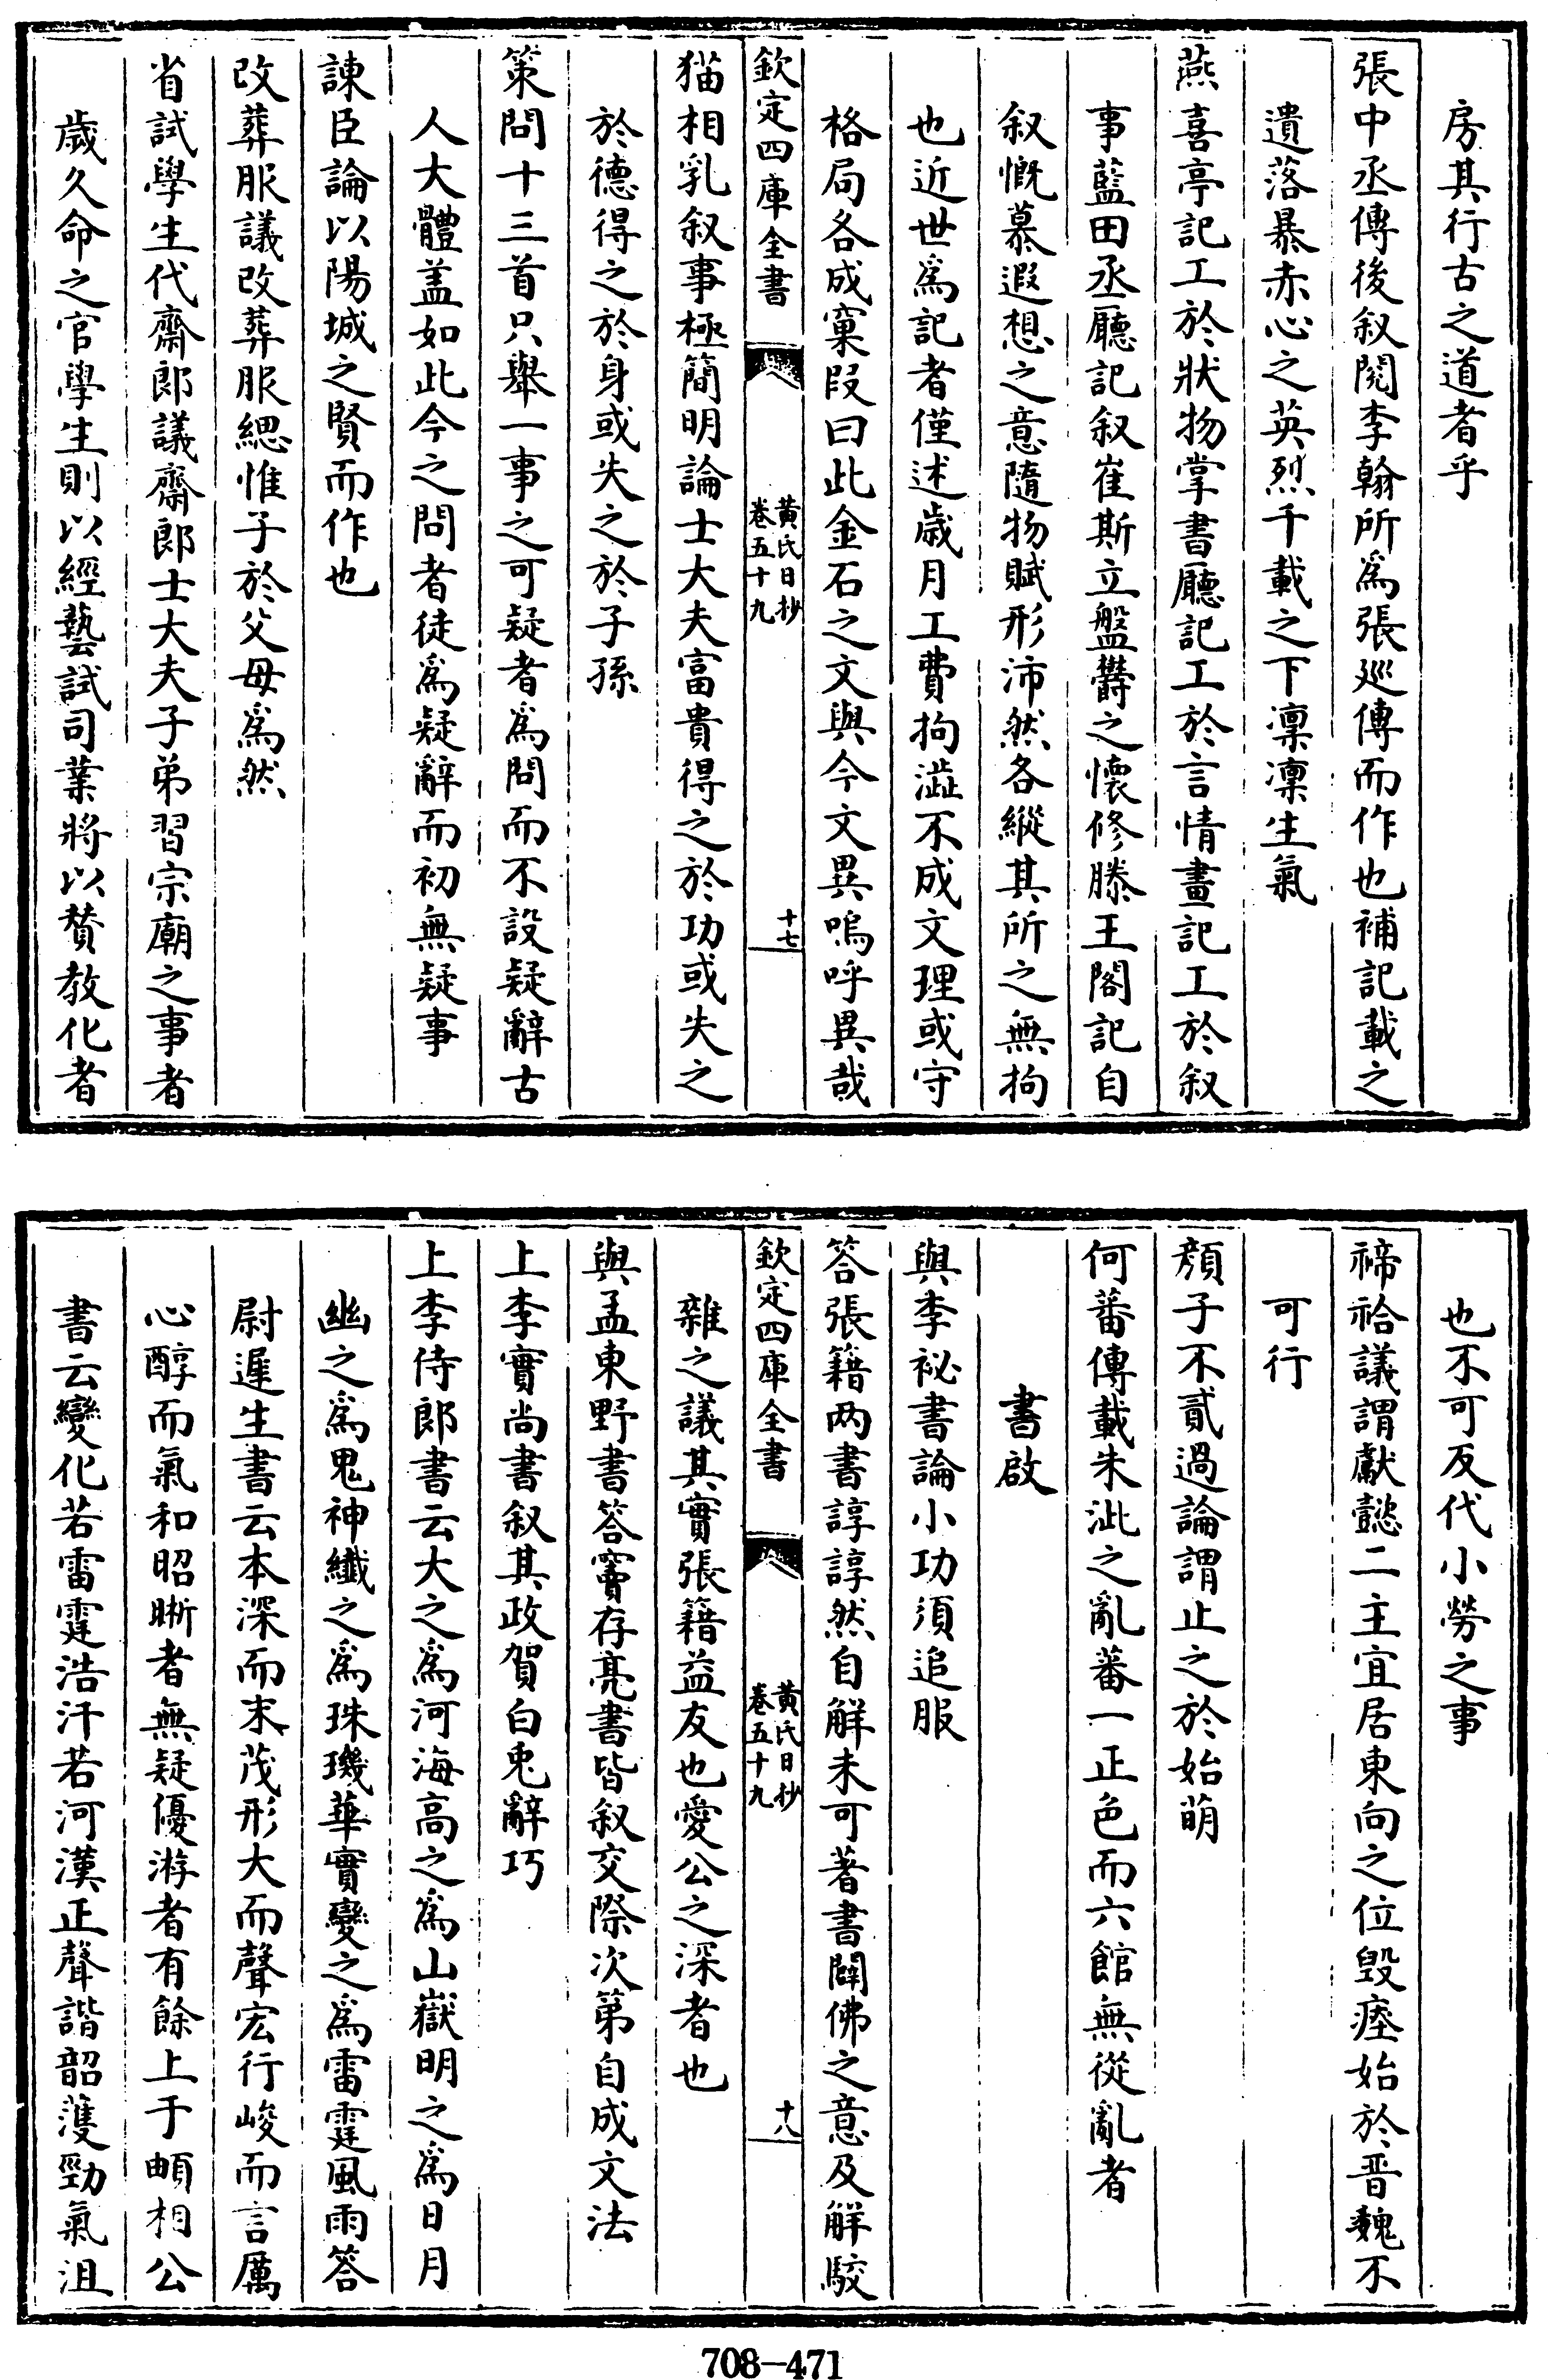 房其行古之道者乎
張中丞傳後叙閱李翰所為張廵傳而作也補記載之
遺落暴赤心之英烈千載之下凜凜生氣
燕喜亭記工於狀物掌書廳記工於言情畫記工於叙
事藍田丞廳記叙崔斯立盤鬱之懷修滕王閣記自
叙慨慕遐想之意隨物賦形沛然各縱其所之無拘
也近世為記者僅述歲月工費拘澁不成文理或守
格局各成窠叚曰此金石之文與今文異嗚呼異哉
欽定四庫全書
黃氏日抄
卷五十九
十七
猫相乳叙事極簡明論士大夫富貴得之於功或失之
於德得之於身或失之於子孫
策問十三首只舉一事之可疑者為問而不設疑辭古
人大體盖如此今之問者徒為疑辭而初無疑事
諫臣論以陽城之賢而作也
改葬服議改葬服緦惟子於父母為然
省試學生代齋郎議齋郎士大夫子弟習宗廟之事者
歲久命之官學生則以經藝試司業將以贊教化者
也不可反代小勞之事
禘祫議謂獻懿二主宜居東向之位毁瘞始於晋魏不
可行
顏子不貳過論謂止之於始萌
何蕃傳載朱泚之亂蕃一正色而六館無從亂者
書啟
與李袐書論小功須追服
答張籍两書諄諄然自解未可著書闢佛之意及解駁
欽定四庫全書
黃氏日抄
卷五十九
十八
雜之議其實張籍益友也愛公之深者也
與孟東野書答竇存亮書皆叙交際次第自成文法
上李實尚書叙其政賀白兎辭巧
上李侍郎書云大之為河海高之為山嶽明之為日月
幽之為鬼神纖之為珠璣華實變之為雷霆風雨答
尉遲生書云本深而末茂形大而聲宏行峻而言厲
心醇而氣和昭晰者無疑優游者有餘上于頔相公
書云變化若雷霆浩汗若河漢正聲諧韶濩勁氣沮
708—471